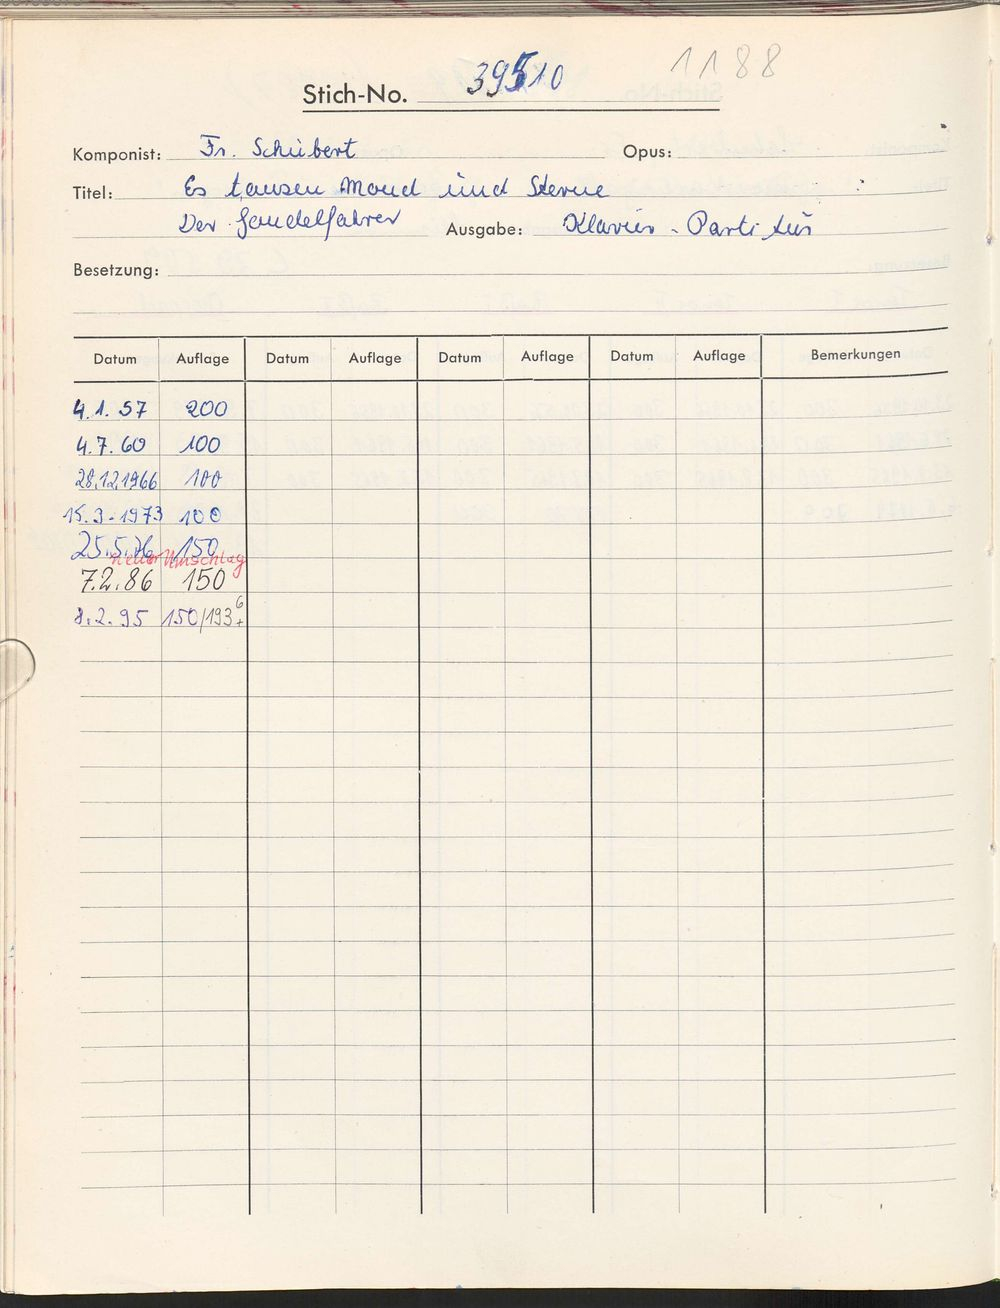 1188
Stich-No. 39510
Komponist: Fr. Schubert Opus:
Titel: Es tanzen Mond und Sterne
Der Gondelfahrer Ausgabe: Klavier-Partitur
Besetzung:
Datum Auflage Datum Auflage Datum Auflage Datum Auflage Bemerkungen
4.1.57 200
4.7.60 100
28.12.1966 100
15.3.1973 100
25.5.76 150
neuer Umschlag
7.2.86 150
8.2.95 150/193